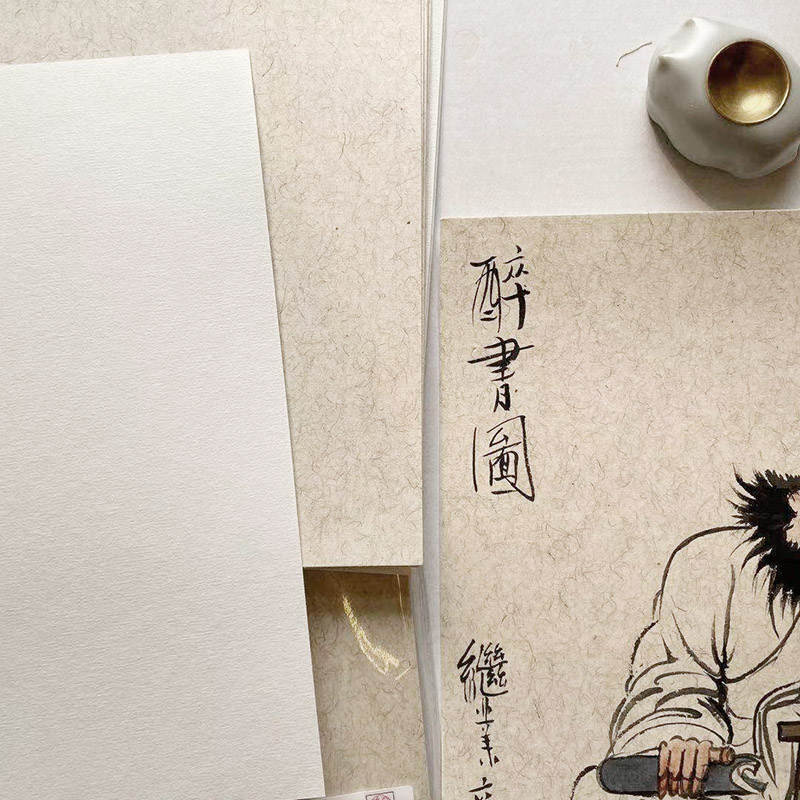 醉書圖
繼業